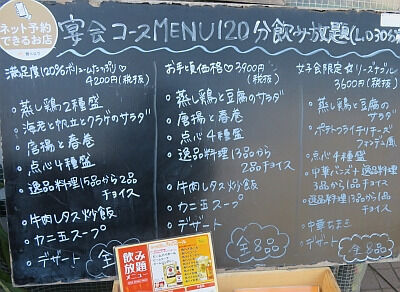 ネット予約
できるお店
宴会コースMENU120分飲み放題(L.O30分)
満足度120%ボリュームたっぷり♡
4200円(税抜)
・蒸し鶏2種盛
・海老と帆立とクラゲのサラダ
・唐揚と春巻
・点心4種盛
・逸品料理15品から2品
チョイス
・牛肉レタス炒飯
・カニ玉スープ
・デザート
全8品
お手ど真価格♡3900円
(税抜)
・蒸し鶏と豆腐のサラダ
・唐揚と春巻
・点心4種盛
・逸品料理13品から
2品チョイス
・牛肉レタス炒飯
・カニ玉スープ
・デザート
全8品
女子会限定☆リーズナブル
3600円(税抜)
・蒸し鶏と豆腐の
サラダ
・ポテトフライチリチーズ
フォンデュ風
・点心4種盛
・中華バンズ+逸品料理
3品から1品チョイス
・逸品料理3品から1品
チョイス
・中華ちまき
・デザート
全8品
飲み
放題
メニュー